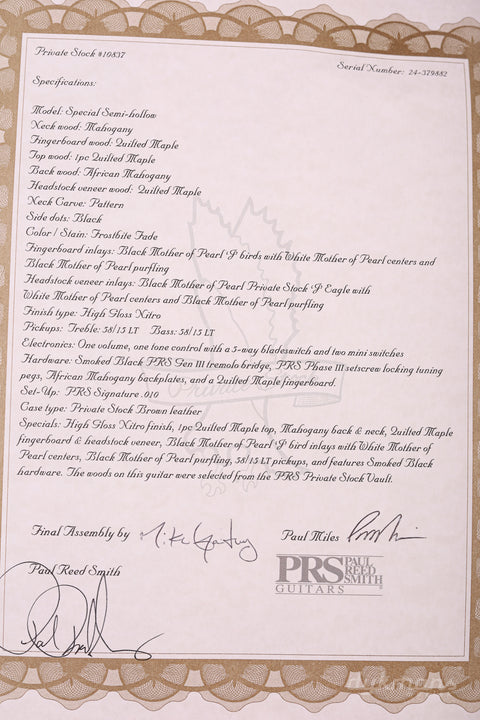 Private Stock #10837
Serial Number: 24-379882
Specifications:
Model: Special Semi-hollow
Neck wood: Mahogany
Fingerboard wood: Quilted Maple
Top wood: 1pc Quilted Maple
Back wood: African Mahogany
Headstock veneer wood: Quilted Maple
Neck Carve: Pattern
Side dots: Black
Color / Stain: Frostbite Fade
Fingerboard inlays: Black Mother of Pearl 'J' birds with White Mother of Pearl centers and
Black Mother of Pearl purfling
Headstock veneer inlays: Black Mother of Pearl Private Stock 'J' Eagle with
White Mother of Pearl centers and Black Mother of Pearl purfling
Finish type: High Gloss Nitro
Pickups: Treble: 58/15 LT Bass: 58/15 LT
Electronics: One volume, one tone control with a 5-way bladeswitch and two mini switches
Hardware: Smoked Black PRS Gen III tremolo bridge, PRS Phase III setscrew locking tuning
pegs, African Mahogany backplates, and a Quilted Maple fingerboard.
Set-Up: PRS Signature .010
Case type: Private Stock Brown leather
Specials: High Gloss Nitro finish, 1pc Quilted Maple top, Mahogany back & neck, Quilted Maple
fingerboard & headstock veneer, Black Mother of Pearl 'J' bird inlays with White Mother of
Pearl centers, Black Mother of Pearl purfling, 58/15 LT pickups, and features Smoked Black
hardware. The woods on this guitar were selected from the PRS Private Stock Vault.
Final Assembly by
Paul Miles
Paul Reed Smith
PRS PAUL
REED
SMITH
GUITARS